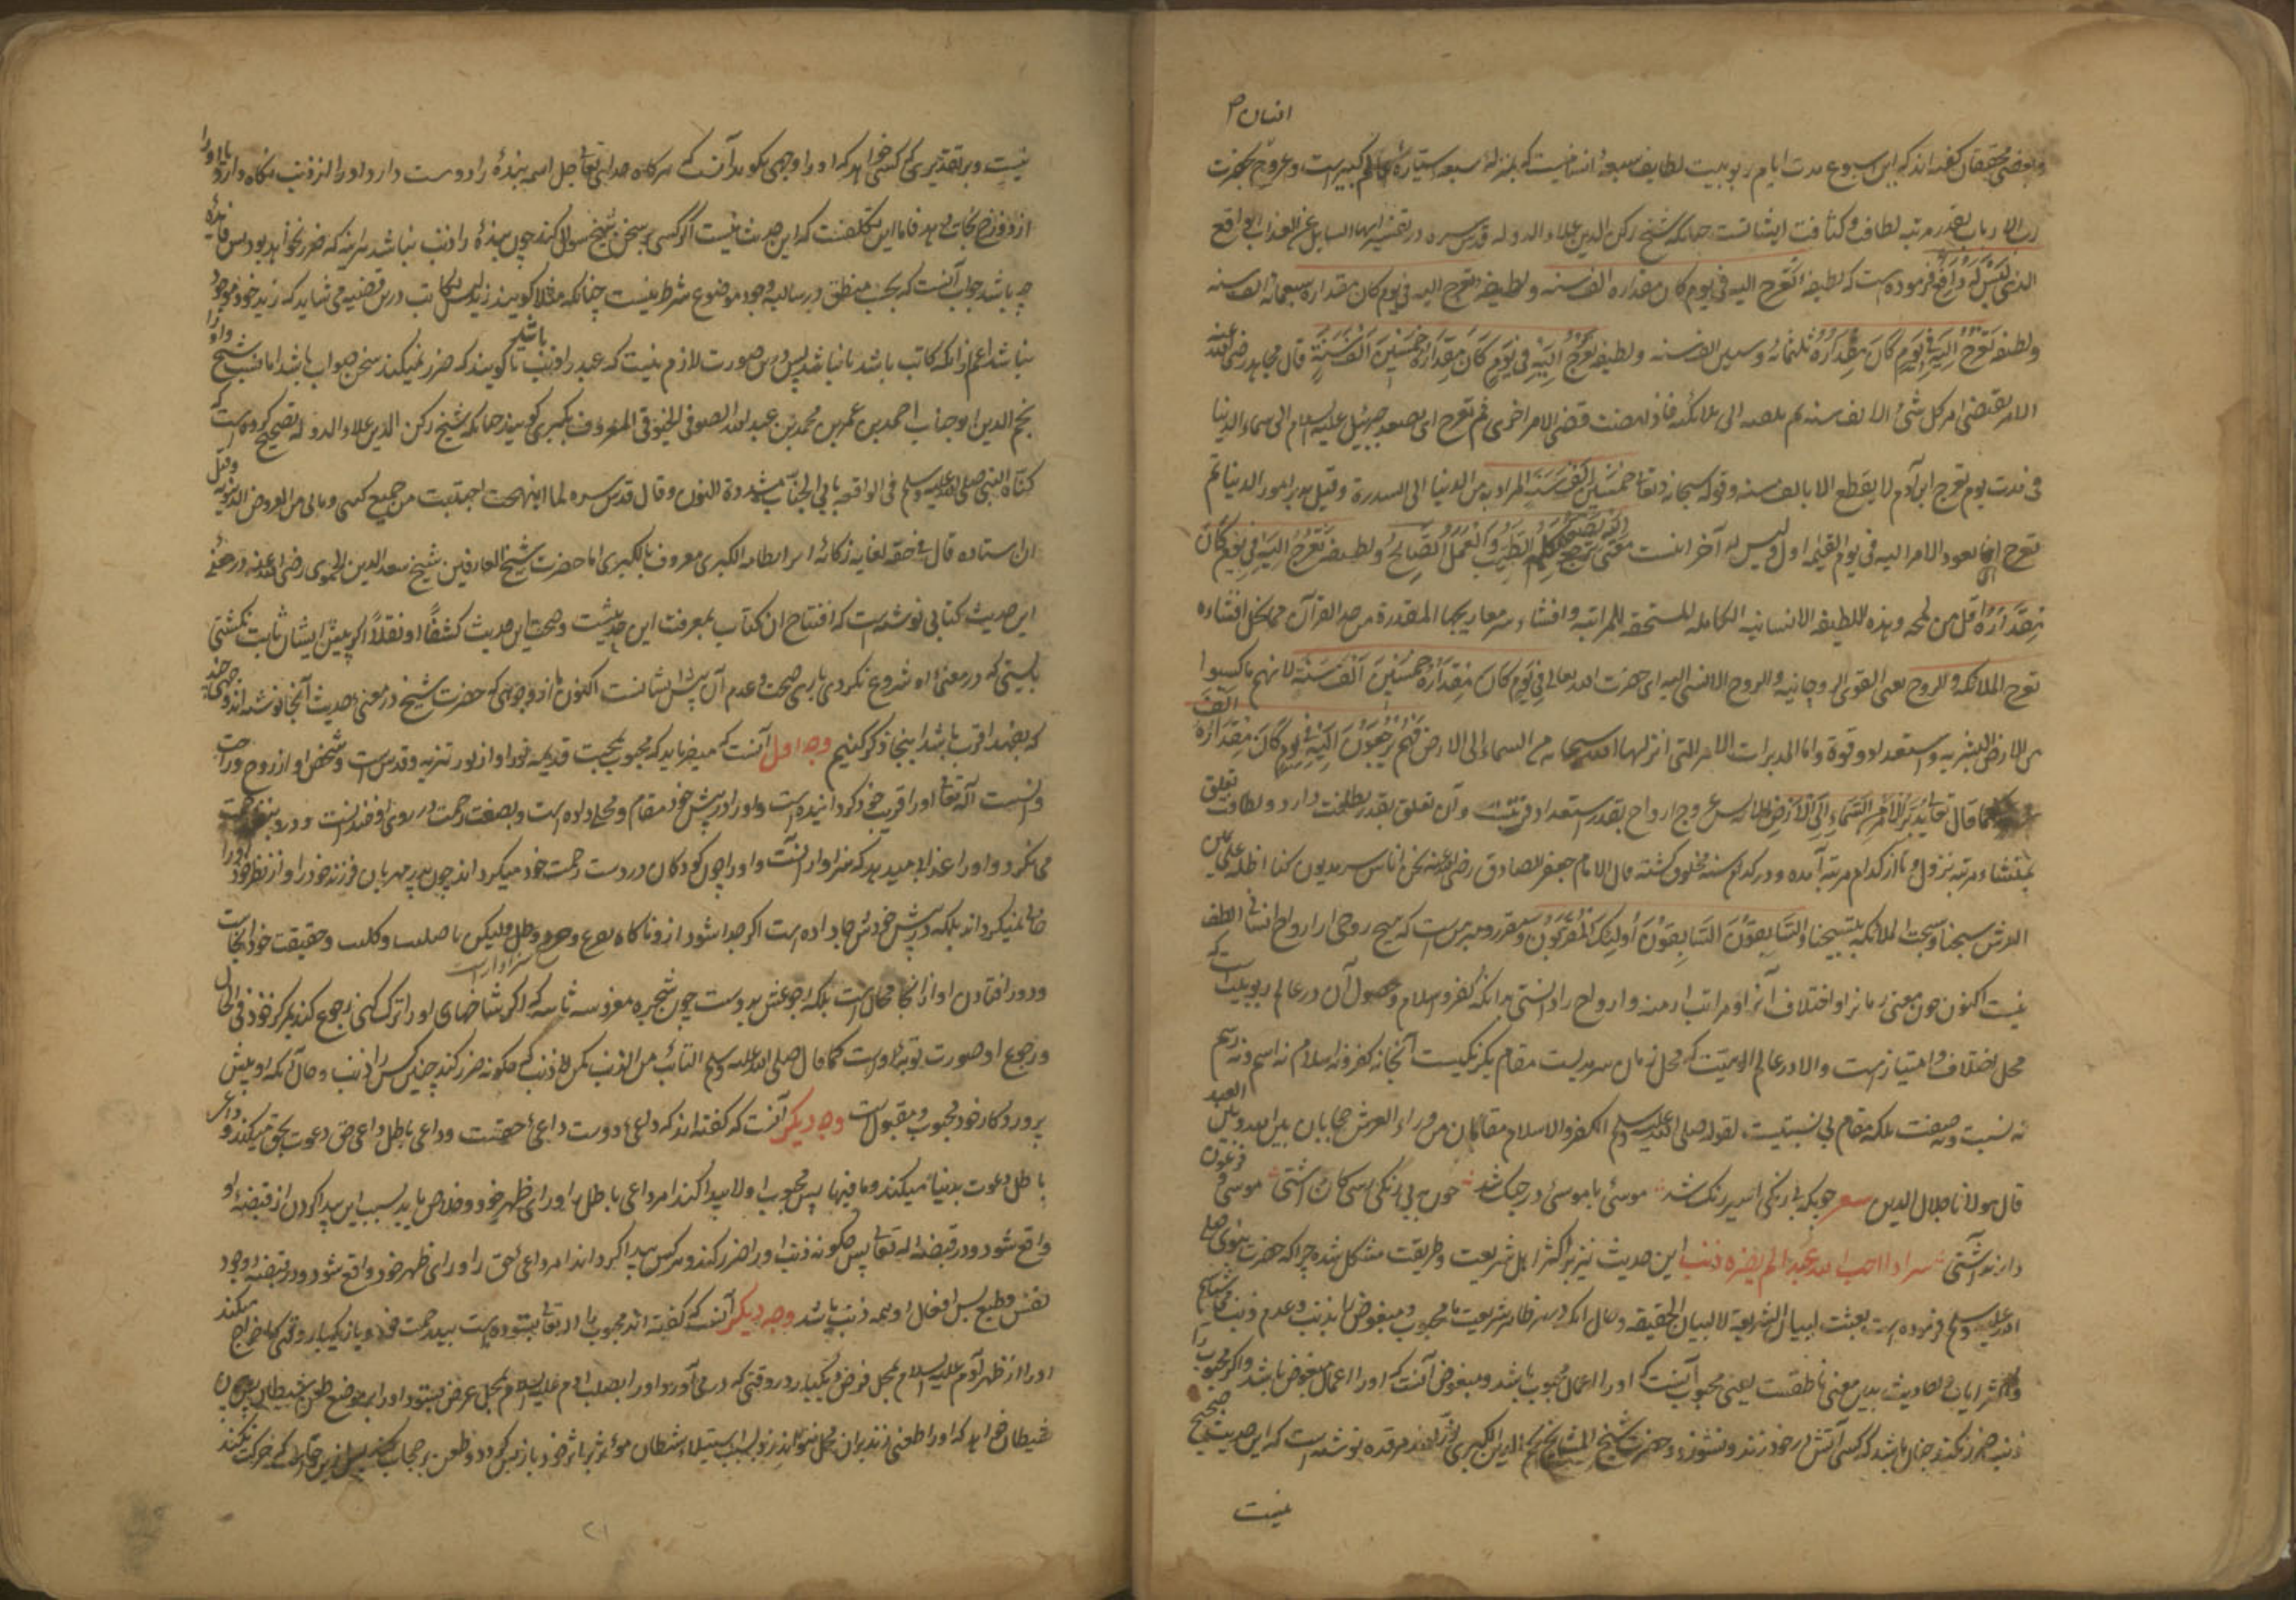 انسان ۲
وبعضی محققان گفته‌اند که این اسبوع مدت ایام ربوبیت لطایف سبعهٔ انسانیست که بمنزله سبعه سیارهٔ عالم کبیرست وعروج بحضرت
رب الارباب بقدر مرتبه لطافت وکثافت ایشانست چنانکه شیخ رکن الدین علاء الدوله قدس سره در تفسیر ایها السایل عن العذاب الواقع
الذی لیس له دافع فرموده است که لطیفهٔ تعرج الیه فی یوم کان مقداره الف سنه ولطیفهٔ تعرج الیه فی یوم کان مقداره سبعمائه الف سنه
ولطیفه تَعْرُجُ اِلَیْهِ فی یَوْمٍ کَانَ مِقْدَارُهُ ثلثمائه وستین الف سنه ولطیفه تَعْرُجُ اِلَیْهِ فی یَوْمٍ کَانَ مِقْدَارُهُ خَمْسِینَ اَلْفَ سَنَةٍ قال مجاهد رضی الله عنه
الامر یقتضی امر کل شئ الف سنه ثم یلقیه الی ملائکته فاذا مضت قضی الامر اخری ثم تعرج ای یصعد جبرئیل علیه السلام الی سماء الدنیا
فی مدت یوم تعرج ابن آدم لا یقطع الا بالف سنه وقوله سبحانه وتعا خَمْسِینَ اَلْفَ سَنَةٍ المراد به من الدنیا الی السدرة وقیل یدبر امور الدنیا ثم
تعرج ای یعود الامر الیه فی یوم القیمه اول ولیس له آخر اینست معنی اِلَیْهِ یَصْعَدُ الْکَلِمُ الطَّیِّبُ وَالْعَمَلُ الصَّالِحُ ولطیفه تَعْرُجُ اِلَیْهِ فی یَوْمٍ کَانَ
مِقْدَارُهُ اقل من لمحه وهذه للطیفه الانسانیه الکامله المستحقه للمراتبه وافشاء سر معاریجها المقدرة من حد القرآن مما یخل افشاءه
تعرج الملائکه والروح یعنی القوی الروحانیه والروح الانسی الیه ای حضرت الله تعالی فی یَوْمٍ کَانَ مِقْدَارُهُ خَمْسِینَ اَلْفَ سَنَةٍ لانهم ماکسبوا
من الارض البشریه واستعداد وقوة واما المدبرات الامر التی انزلها الله سبحانه من السماء الی الارض فهم یَرْجِعُونَ اِلَیْهِ فی یَوْمٍ کَانَ مِقْدَارُهُ اَلْفَ
کما قال تعا یُدَبِّرُ الْاَمْرَ مِنَ السَّمَاءِ اِلَی الْاَرْضِ پس عروج ارواح بقدر استعداد قربتست وآن تعلق بقدر بطلعت دارد ولطافت تعلق
بمنشاء ومرتبه نزول تا از کدام مرتبه آمده ودر کدام سنه مخلوق گشته قال الامام جعفر الصادق رضی الله عنه نحن اناس سرمدیون کنا اظله علی یمین
العرش سبحنا وسبحت الملائکه بتسبیحنا وَالسَّابِقُونَ السَّابِقُونَ اُولٰئِکَ الْمُقَرَّبُونَ ومقررست که هیچ روحی را ارواح انسانی الطف
نیست اکنون چون معنی زمانرا واختلاف آنرا ومراتب ازمنه وارواح را دانستی بدانکه کفر واسلام وحصول آن در عالم ربوبیت است که
محل اختلاف وامتیازست والا در عالم الوهیت که محل زمان سرمدیست مقام یکرنگیست آنجا نه کفر ونه اسلام نه اسم ونه رسم
نه نسبت ونه صفت بلکه مقام بی نسبتیست لقوله صلی الله علیه وسلم الکفر والاسلام مقامان من وراء العرش حجابان بین الله وبین العبد
قال مولانا جلال الدین شعر چونکه بی رنگی اسیر رنگ شد موسئی با موسئی در جنگ شد چون به بی رنگی رسی کان داشتی موسی وفرعون
دارند آشتی سر اذا احب الله عبدا لم یضره ذنب این حدیث نیز بر اکثر اهل شریعت وطریقت مشکل شده چراکه حضرت نبوی صلی
الله علیه وسلم فرموده است بعثت لبیان الشریعة لا لبیان الحقیقه وحال آنکه در ظاهر شریعت محبوب ومبغوض را بذنب وعدم ذنب شناسیم
واکثر ایات واحادیث بدین معنی ناطقست یعنی محبوب آنست که اورا اعمال محبوب باشد ومبغوض آنست که اورا اعمال مبغوض باشد واگر محبوب را
ذنب ضرر نکند چنان باشد که کسی آتش در خود زند ونسوزد وحضرت شیخ المشایخ نجم الدین الکبری نور الله مرقده نوشته است که این حدیث صحیح
نیست
نیست وبر تقدیری که کسی خواهد که اورا وجهی گوید آنست که هرگاه خدای تعا جل اسمه بندهٔ را دوست دارد اورا از ذنب نگاه دارد یا اورا
از دوزخ نجات دهد فاما این تکلفست که این حدیث نیست اگر کسی بر سخن شیخ سوال کند چون بندهٔ را ذنب نباشد هراینه که ضرر نخواهد بود پس فایدهٔ
چه باشد جواب آنست که بحسب منطق در سالبه وجود موضوع شرط نیست چنانکه مثلا گویند زید لیس بکاتب درین قضیه می شاید که زید خود موجود
نباشد اعم از آنکه کاتب باشد یا نباشد پس درین صورت لازم نیست که عبد را ذنب باشد تا گویند که ضرر نمیکند سخن صواب باشد اما شیخ
نجم الدین ابو جناب احمد بن عمر بن محمد بن عبد الله الصوفی الخیوقی المعروف بکبری گویند چنانکه شیخ رکن الدین علاء الدوله تصحیح کرده است که
کناه النبی صلی الله علیه وسلم فی الواقعه بابی الجناب مشددة النون وقال قدس سره لما انتبهت اجتنبت من جمیع کسبی ومالی من العروض الدنیویه وقیل
ان استاده قال فی حقه لغایه ذکائه انه الطامه الکبری معروف بالکبری اما حضرت شیخ العارفین شیخ سعد الدین الحموی رضی الله عنه در معنی
این حدیث کتابی نوشته است که افتتاح آن کتاب بمعرفت این حدیثست وصحت این حدیث کشفًا او نقلاً اگر پیش ایشان ثابت نگشتی
بایستی که در معنی او شروع نکردی باری صحت وعدم آن پیش ایشانست اکنون ما از وجوهی که حضرت شیخ در معنی حدیث آنجا نوشته‌اند وجهی چند
که بفهم اقرب باشد اینجا ذکر کنیم وجه اول آنست که میفرماید که محبوب بمحبت قدیمه خود او از نور تنزیه وقدس است وشخص او از روح وراحت
وانست آله تعا اورا قریب خود گردانیده است واورا در پیش خود مقام ومحل داده است وبصفت رحمت در روی او خندانست
می نگرد واورا غذا میدهد که سزاوار آنست واورا چون کودکان در دست رحمت خود میگرداند چون پدر مهربان فرزند خود را واز نظر خود اورا
خالی نمیگرداند بلکه در پیش خودش جا داده است اگر جدا شود از وناگاه
ودور افتادن او از آنجا محالست بلکه رجوعش بدوست چون شجره مغروسه ثابته که اگر شاخهای اورا ترک کنی رجوع کند بمرکز خود فی الحال
ورجوع او صورت توبهٔ اوست کما قال صلی الله علیه وسلم التائب من الذنب کمن لا ذنب له چگونه ضرر کند چنین کس را ذنب وحال آنکه او پیش
پروردگار خود محبوب ومقبول است وجه دیگر آنست که گفته‌اند که داعی دوست داعئ حقست وداعی باطل داعی حق دعوت بحق میکند وداعی
باطل دعوت بدنیا میکند ومافیها پس محبوب اولا پیدا کند امر داعی باطل را ورای ظهر خود وخلاص یابد بسبب این پیدا کردن از قبضهٔ او
واقع شود در قبضهٔ اله تعا پس چگونه ذنب اورا ضرر کند وهرکس پیدا گرداند امر داعی حق را ورای ظهر خود واقع شود در قبضهٔ وجود
نفس وطبع پس افعال او همه ذنب باشد وجه دیگر آنست که گفته‌اند محبوب را اله تعا بستوده است بید رحمت خود یکبار وقتی که اخراج میکند
اورا از ظهر آدم علیه السلام بمحل فرض ویکبار در وقتی که در می آورد اورا بصلب آدم علیه السلام بمحل عرض
شیطان خواهد که اورا طعنی زند بران محل نتواند زد بسبب استیلاء شیطان موثر بر اثر خود باز پس گردد وطعن بر حجاب
۲۱